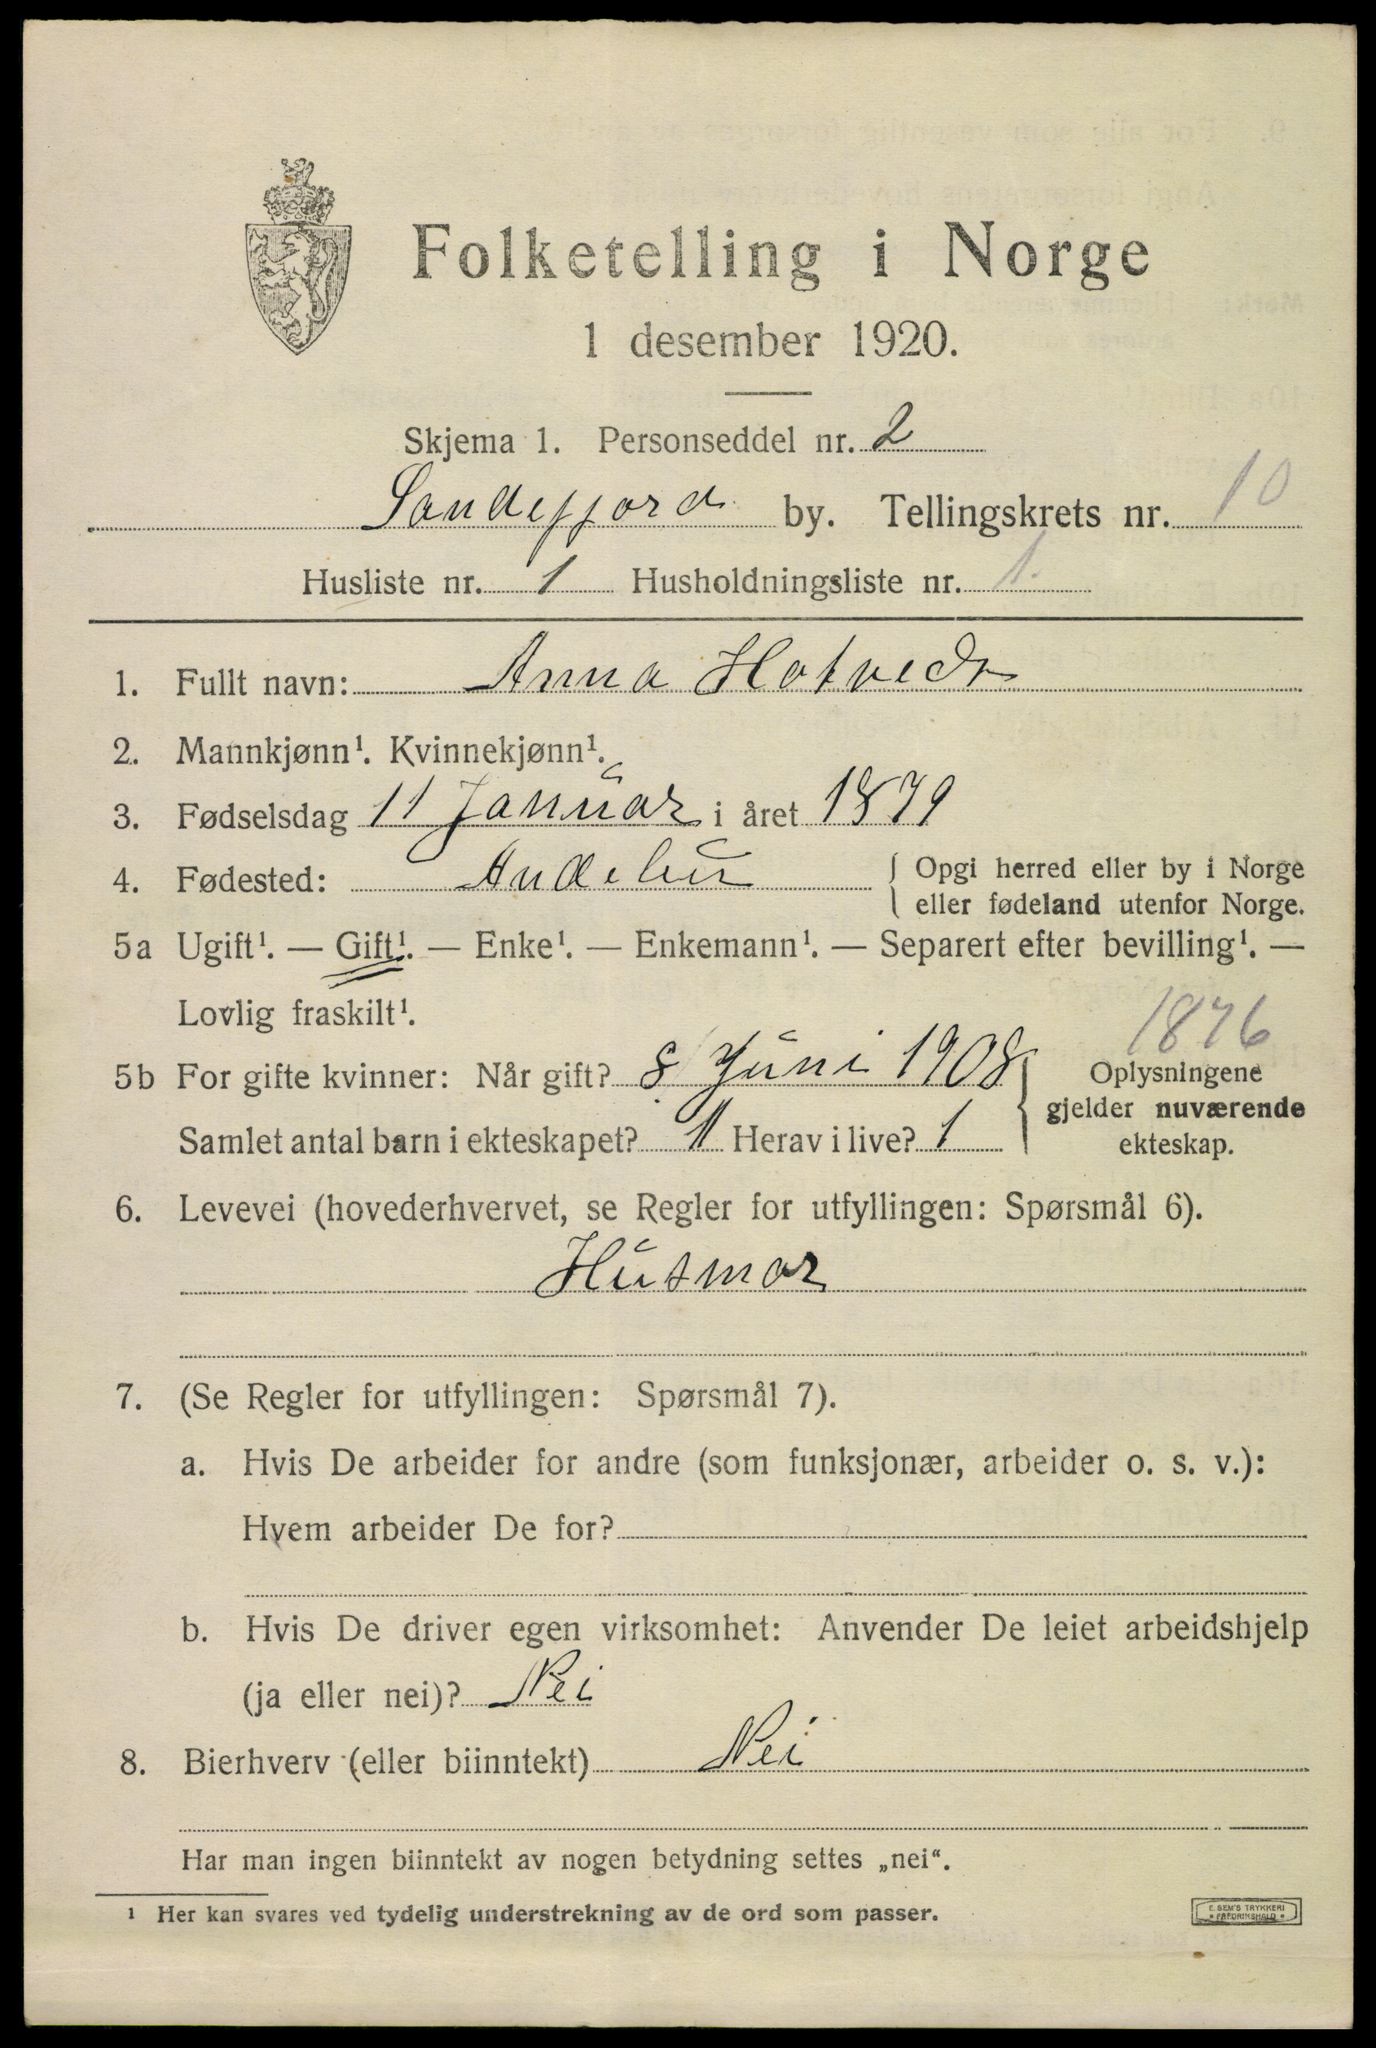 Folketelling i Norge
1 desember 1920.
Skjema 1. Personseddel nr. 2
Sandefjord by. Tellingskrets nr. 10
Husliste nr. 1 Husholdningsliste nr. 1.
1. Fullt navn: Anna Hotvedt
2. Mannkjønn¹. Kvinnekjønn¹.
3. Fødselsdag 11 Januar i året 1879
4. Fødested: Andebu { Opgi herred eller by i Norge
eller fødeland utenfor Norge.
5a Ugift¹. — Gift¹. — Enke¹. — Enkemann¹. — Separert efter bevilling¹. —
Lovlig fraskilt¹.
1876
5b For gifte kvinner: Når gift? 8 Juni 1908 } Oplysningene
gjelder nuværende
Samlet antal barn i ekteskapet? 1 Herav i live? 1 ekteskap.
6. Levevei (hovederhvervet, se Regler for utfyllingen: Spørsmål 6).
Husmor
7. (Se Regler for utfyllingen: Spørsmål 7).
a. Hvis De arbeider for andre (som funksjonær, arbeider o. s. v.):
Hvem arbeider De for?
b. Hvis De driver egen virksomhet: Anvender De leiet arbeidshjelp
(ja eller nei)? Nei
8. Bierhverv (eller biinntekt) Nei
Har man ingen biinntekt av nogen betydning settes „nei“.
¹ Her kan svares ved tydelig understrekning av de ord som passer.
E. SEM'S TRYKKERI
FREDRIKSHALD